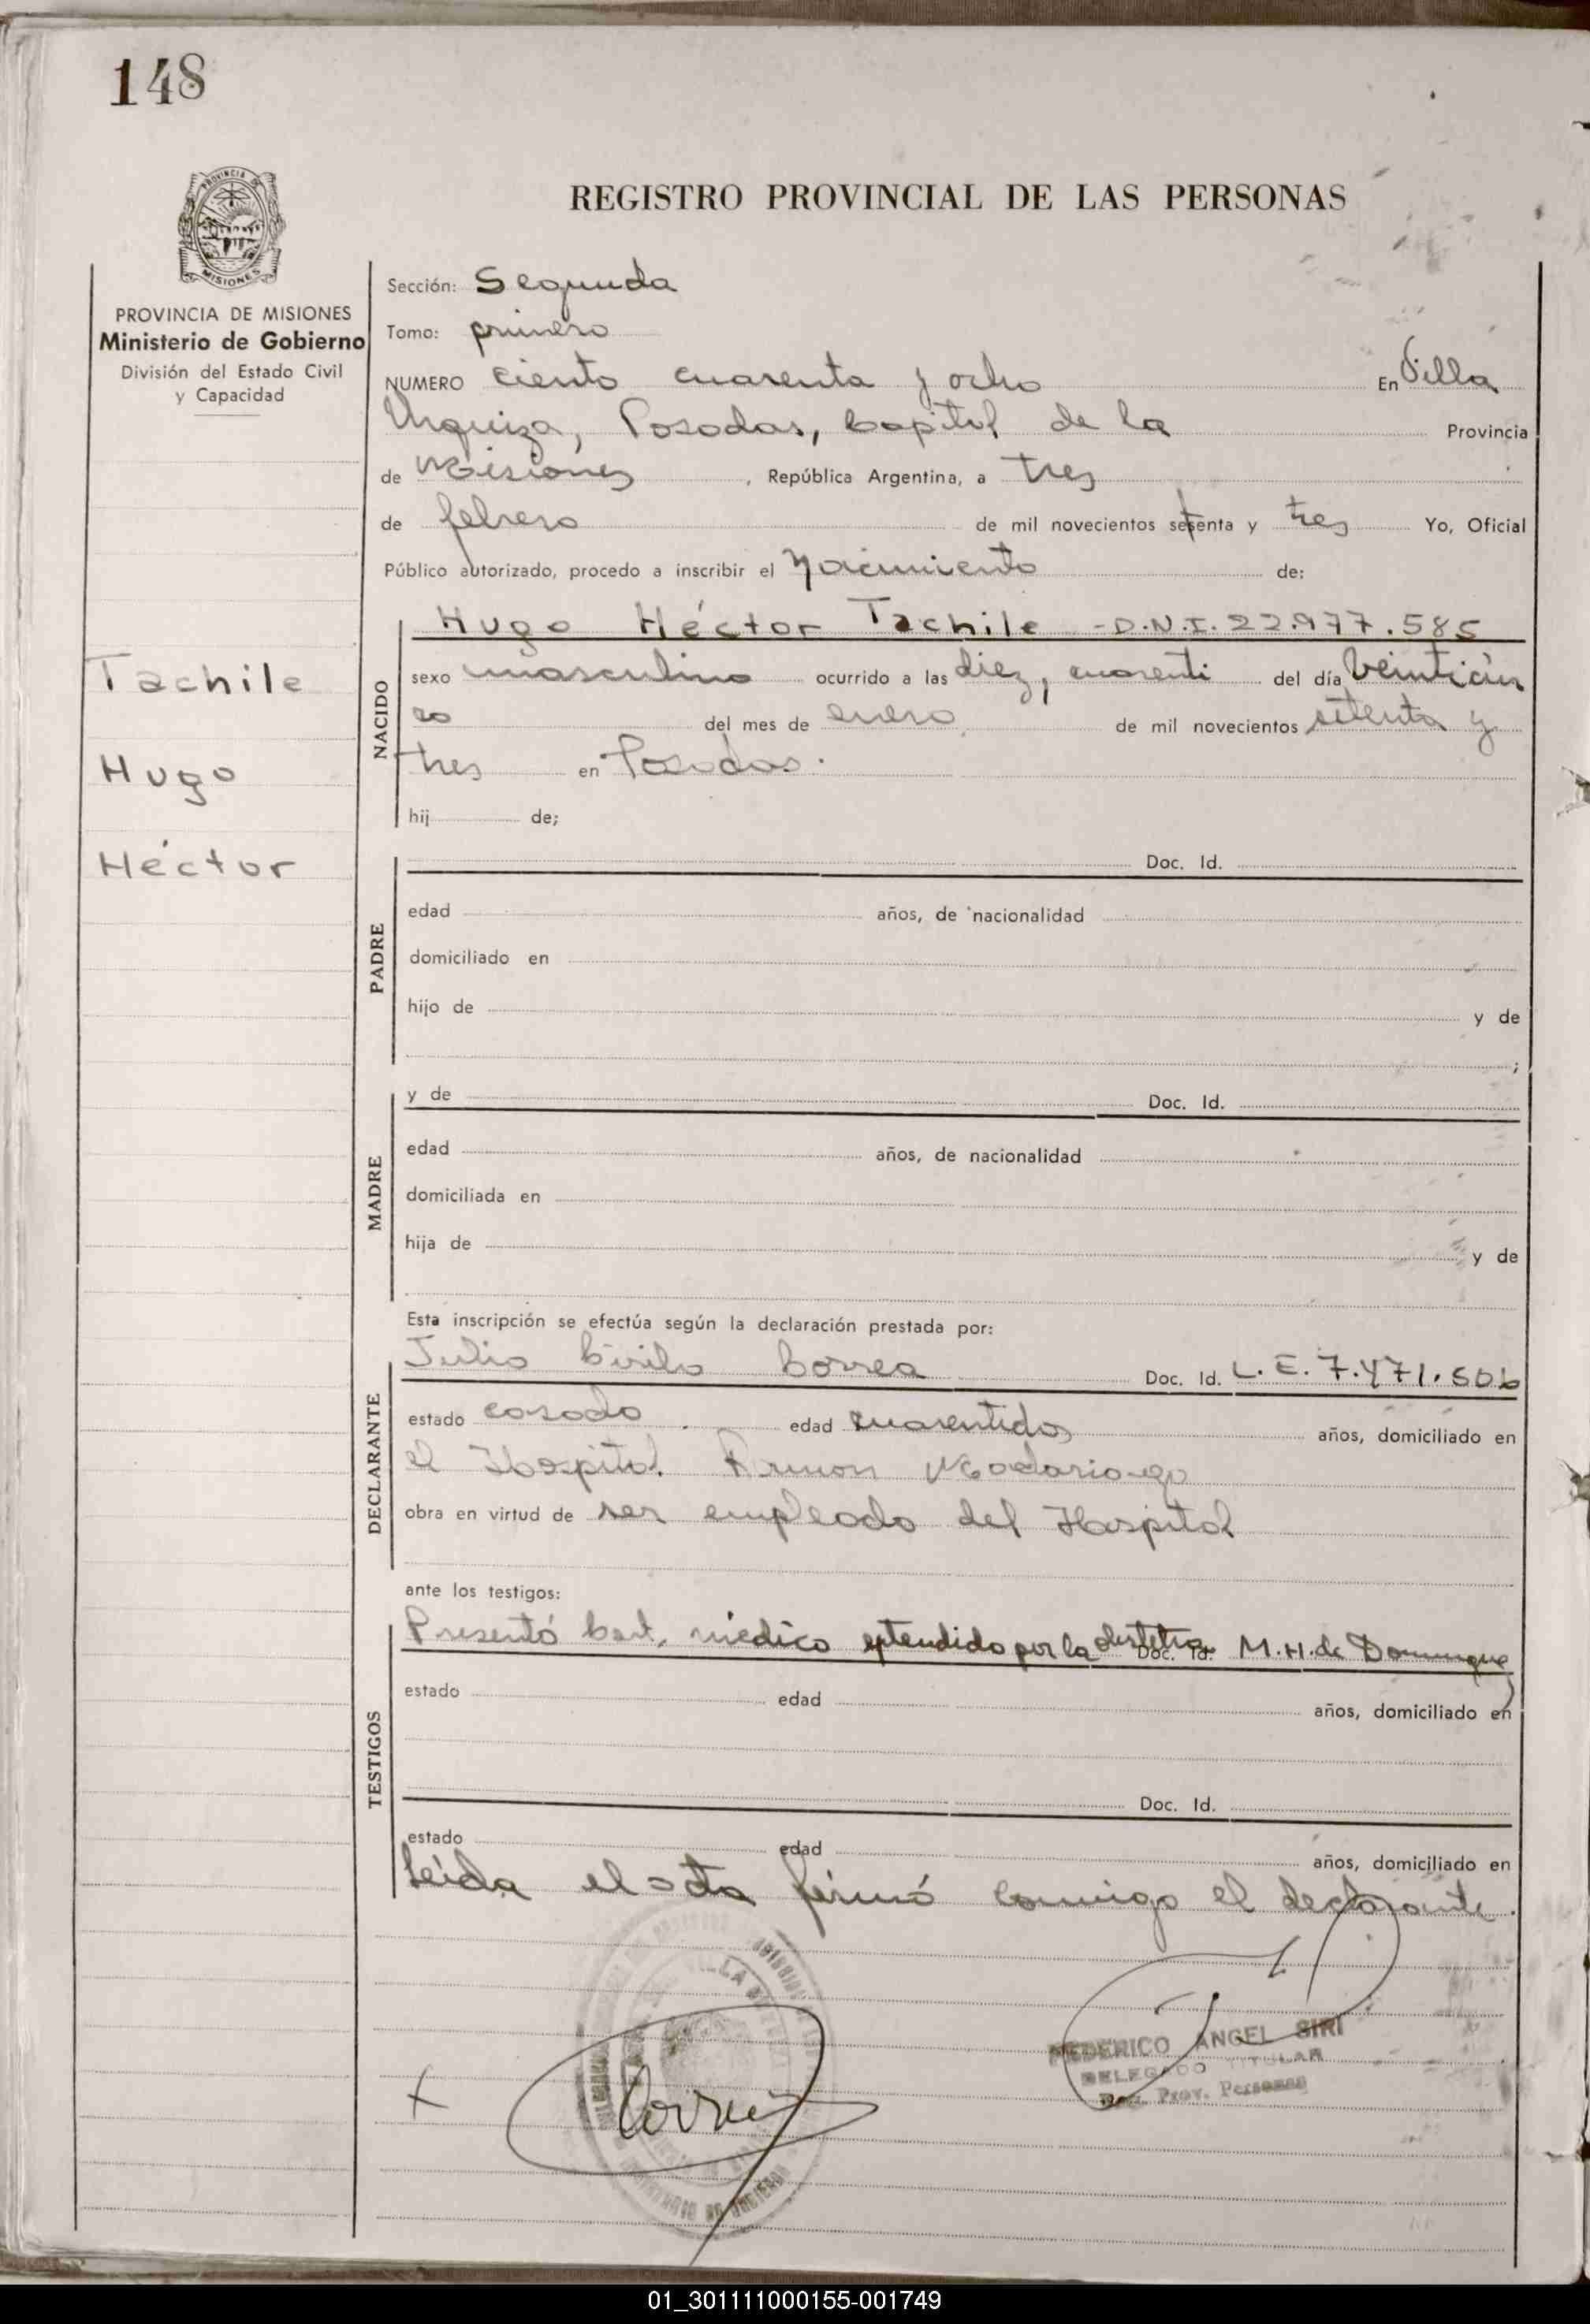 148
REGISTRO PROVINCIAL DE LAS PERSONAS
PROVINCIA DE
MISIONES
PROVINCIA DE MISIONES
Ministerio de Gobierno
División del Estado Civil
y Capacidad
Tachile
Hugo
Héctor
Sección: Segunda
Tomo: primero
NUMERO ciento cuarenta y ocho En Villa
Urquiza, Posadas, Capital de la Provincia
de Misiones, República Argentina, a tres
de febrero de mil novecientos setenta y tres Yo, Oficial
Público autorizado, procedo a inscribir el Nacimiento de:
NACIDO
Hugo Héctor Tachile -D.N.I. 22.977.585
sexo masculino ocurrido a las diez, cuarenta del día veinticin
co del mes de enero de mil novecientos setenta y
tres en Posadas.
hij de;
PADRE
Doc. Id.
edad años, de nacionalidad
domiciliado en
hijo de y de
;
MADRE
y de Doc. Id.
edad años, de nacionalidad
domiciliada en
hija de y de
Esta inscripción se efectúa según la declaración prestada por:
DECLARANTE
Julio Cirilo Correa Doc. Id. L.E. 7.471.506
estado casado edad cuarentidos años, domiciliado en
el Hospital Ramon Madariaga
obra en virtud de ser empleado del Hospital
ante los testigos:
TESTIGOS
Presentó Cert. médico extendido por la obstetra Doc. Id. M.H. de Dominguez
estado edad años, domiciliado en
Doc. Id.
estado edad años, domiciliado en
leída el acta firmó conmigo el declarante.
FEDERICO ANGEL SIRI
DELEGADO TITULAR
Reg. Prov. Personas
Correa
01_301111000155-001749